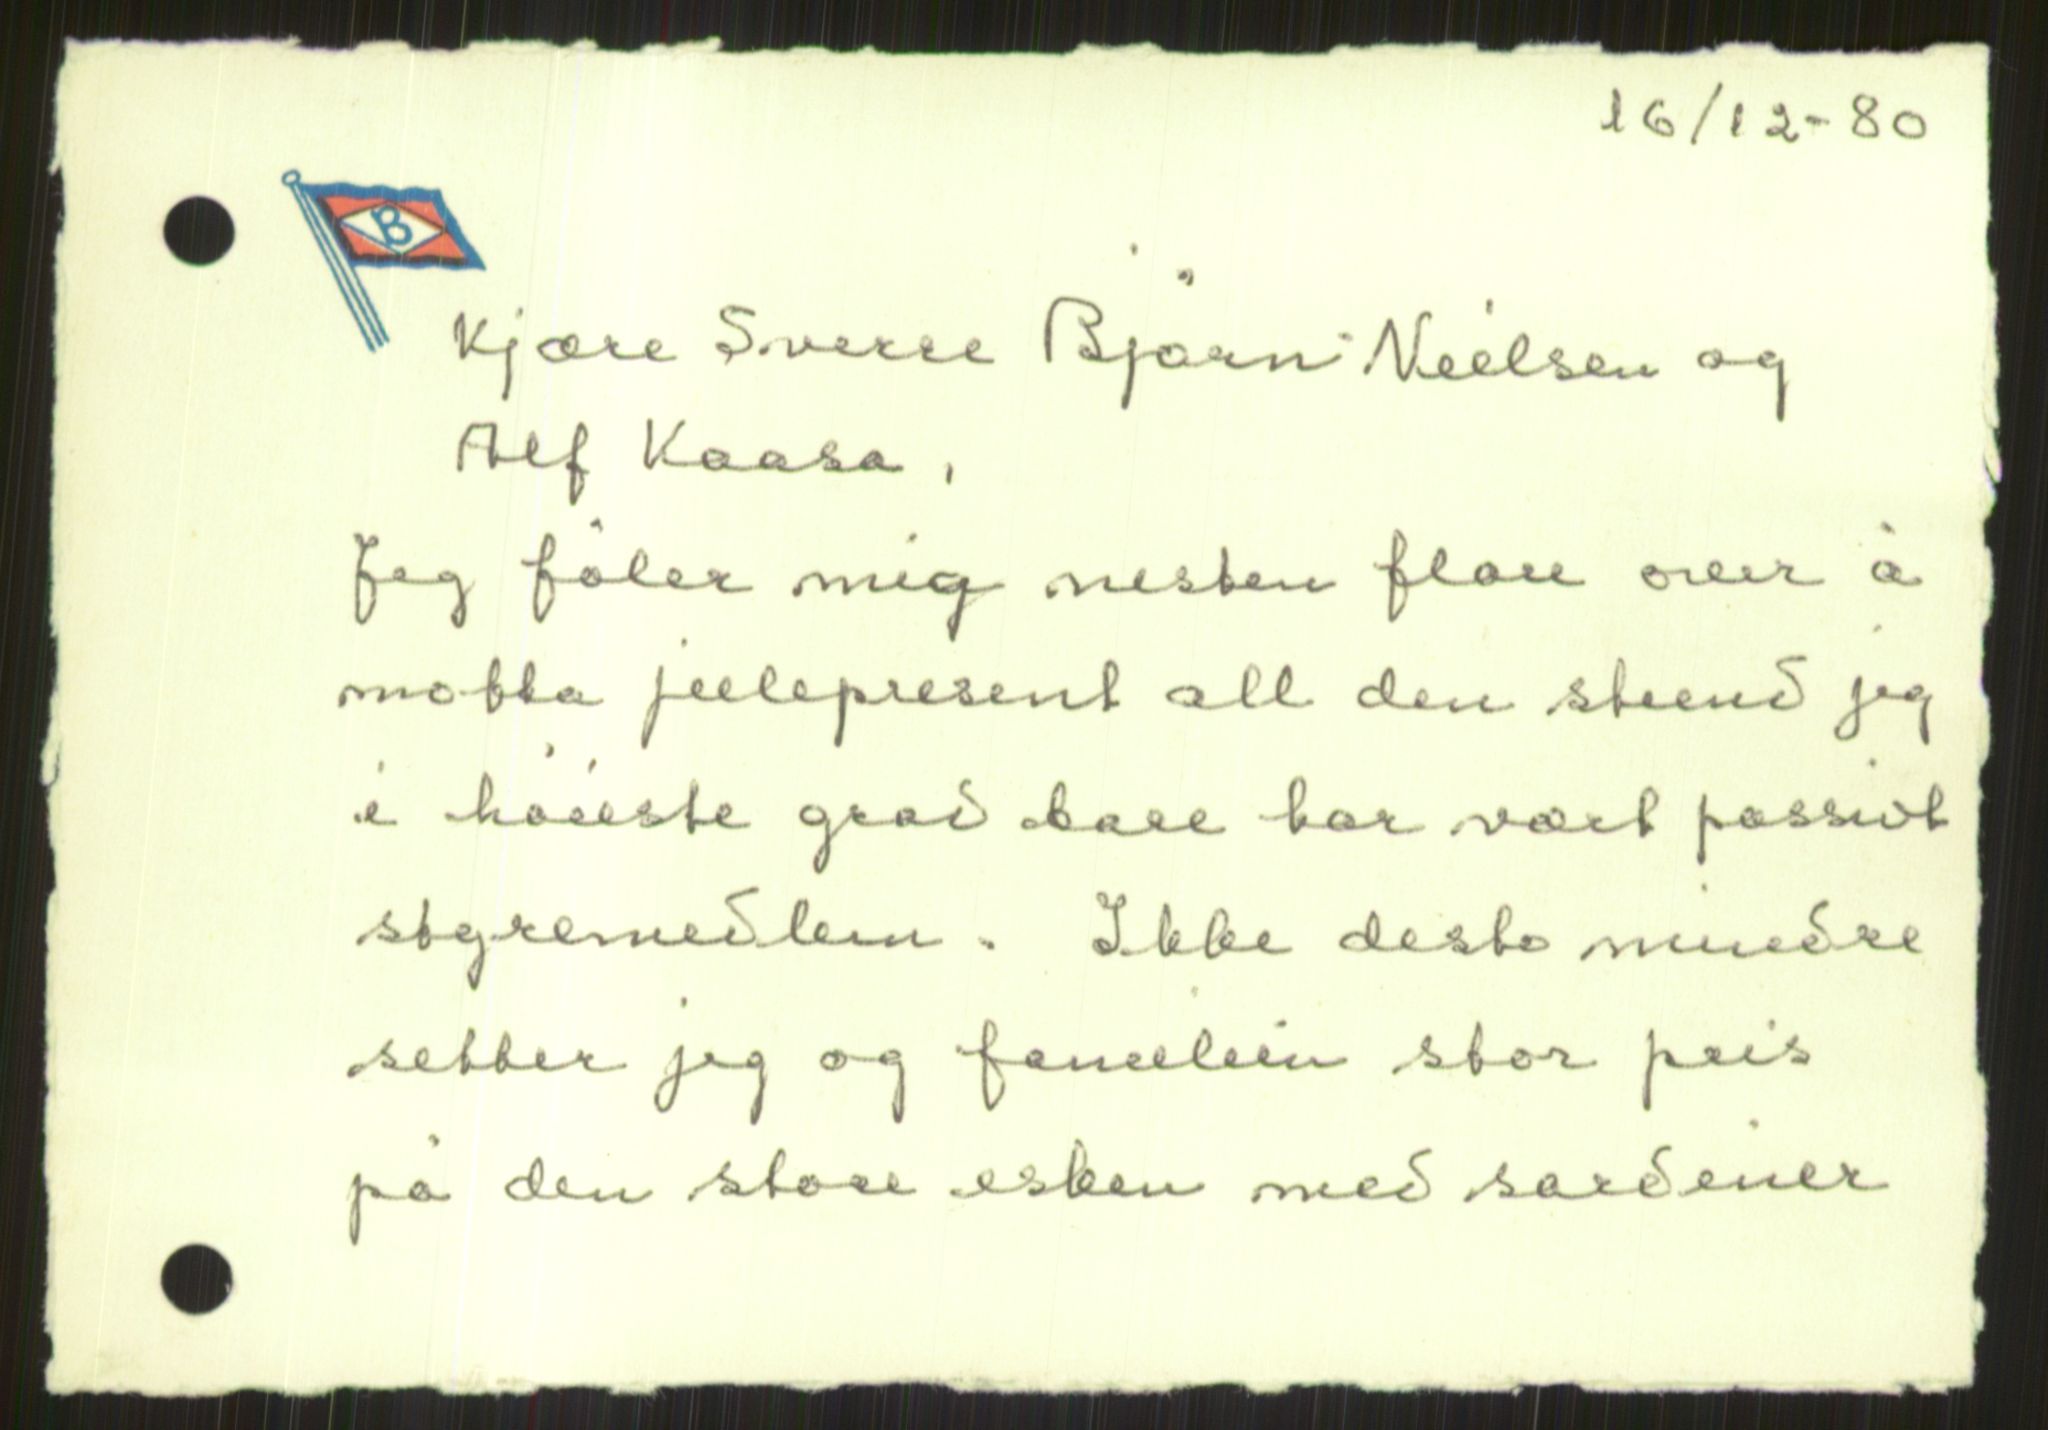 16/12-80
B
Kjære Sverre Björn Nielsen og
Alf Kaasa,
Jeg föler mig nesten flau over å
motta julepresent all den stund jeg
i höieste grad bare har vært passivt
styremedlem. Ikke desto mindre
setter jeg og familien stor pris
på den store esken med sardiner